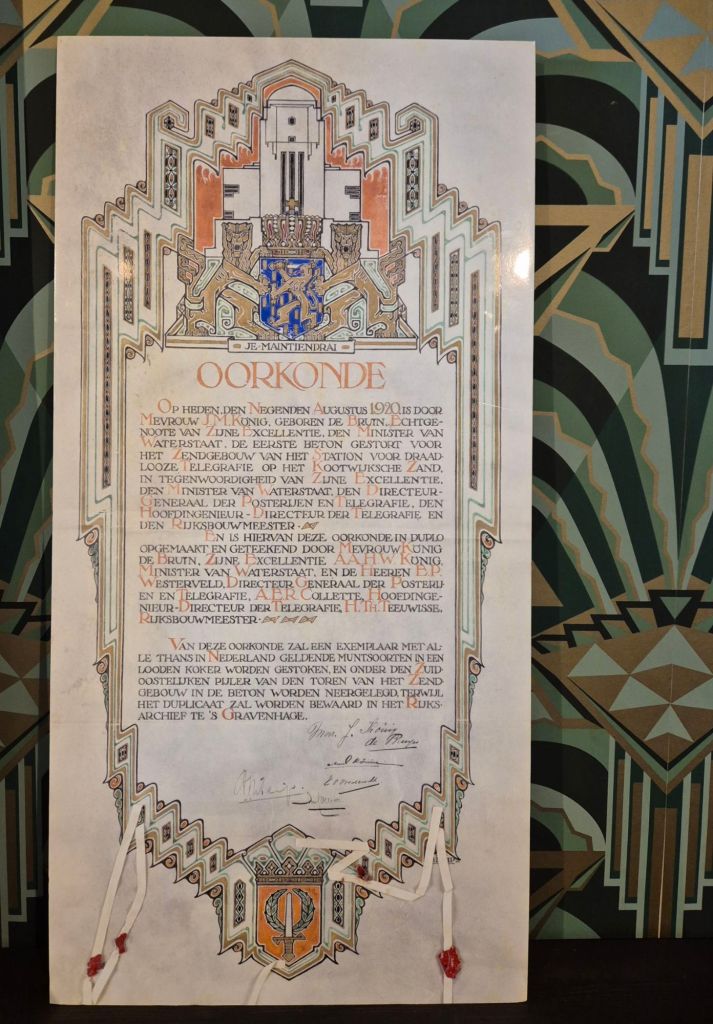 JE·MAINTIENDRAI
OORKONDE
OP HEDEN, DEN NEGENDEN AUGUSTUS 1920, IS DOOR
MEVROUW J.M. KÖNIG, GEBOREN DE BRUIN, ECHTGE-
NOOTE VAN ZIJNE EXCELLENTIE, DEN MINISTER VAN
WATERSTAAT, DE EERSTE BETON GESTORT VOOR
HET ZENDGEBOUW VAN HET STATION VOOR DRAAD-
LOOZE TELEGRAFIE OP HET KOOTWIJKSCHE ZAND,
IN TEGENWOORDIGHEID VAN ZIJNE EXCELLENTIE,
DEN MINISTER VAN WATERSTAAT, DEN DIRECTEUR-
GENERAAL DER POSTERIJEN EN TELEGRAFIE, DEN
HOOFDINGENIEUR-DIRECTEUR DER TELEGRAFIE EN
DEN RIJKSBOUWMEESTER·
EN IS HIERVAN DEZE OORKONDE IN DUPLO
OPGEMAAKT EN GETEEKEND DOOR MEVROUW KÖNIG
DE BRUIN, ZIJNE EXCELLENTIE A.A.H.W. KÖNIG,
MINISTER VAN WATERSTAAT, EN DE HEEREN E.P.
WESTERVELD, DIRECTEUR GENERAAL DER POSTERIJ-
EN EN TELEGRAFIE, A.E.R. COLLETTE, HOOFDINGE-
NIEUR-DIRECTEUR DER TELEGRAFIE, H.TH. TEEUWISSE,
RIJKSBOUWMEESTER·
VAN DEZE OORKONDE ZAL EEN EXEMPLAAR MET AL-
LE THANS IN NEDERLAND GELDENDE MUNTSOORTEN IN EEN
LOODEN KOKER WORDEN GESTOKEN, EN ONDER DEN ZUID-
OOSTELIJKEN PIJLER VAN DEN TOREN VAN HET ZEND-
GEBOUW IN DE BETON WORDEN NEERGELEGD, TERWIJL
HET DUPLICAAT ZAL WORDEN BEWAARD IN HET RIJKS-
ARCHIEF TE 'S GRAVENHAGE.
J. König
de Bruyn